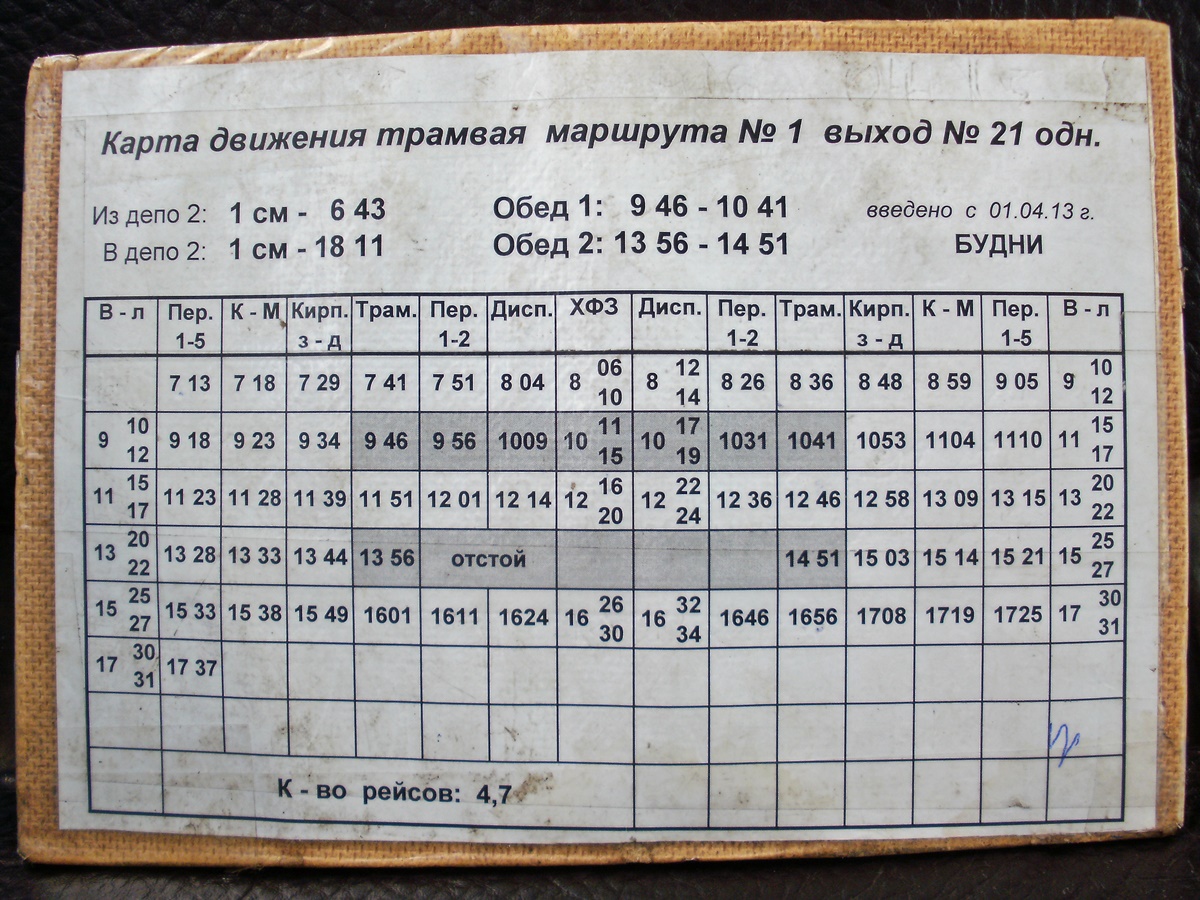 Карта движения трамвая маршрута № 1 выход № 21 одн.
Из депо 2: 1 см - 6 43 Обед 1: 9 46 - 10 41 введено с 01.04.13 г.
В депо 2: 1 см - 18 11 Обед 2: 13 56 - 14 51 БУДНИ
В - л Пер. 1-5 К - М Кирп. з - д Трам. Пер. 1-2 Дисп. ХФЗ Дисп. Пер. 1-2 Трам. Кирп. з - д К - М Пер. 1-5 В - л
7 13 7 18 7 29 7 41 7 51 8 04 8 06 10 8 12 14 8 26 8 36 8 48 8 59 9 05 9 10 12
9 10 12 9 18 9 23 9 34 9 46 9 56 1009 10 11 15 10 17 19 1031 1041 1053 1104 1110 11 15 17
11 15 17 11 23 11 28 11 39 11 51 12 01 12 14 12 16 20 12 22 24 12 36 12 46 12 58 13 09 13 15 13 20 22
13 20 22 13 28 13 33 13 44 13 56 отстой 14 51 15 03 15 14 15 21 15 25 27
15 25 27 15 33 15 38 15 49 1601 1611 1624 16 26 30 16 32 34 1646 1656 1708 1719 1725 17 30 31
17 30 31 17 37
К - во рейсов: 4,7